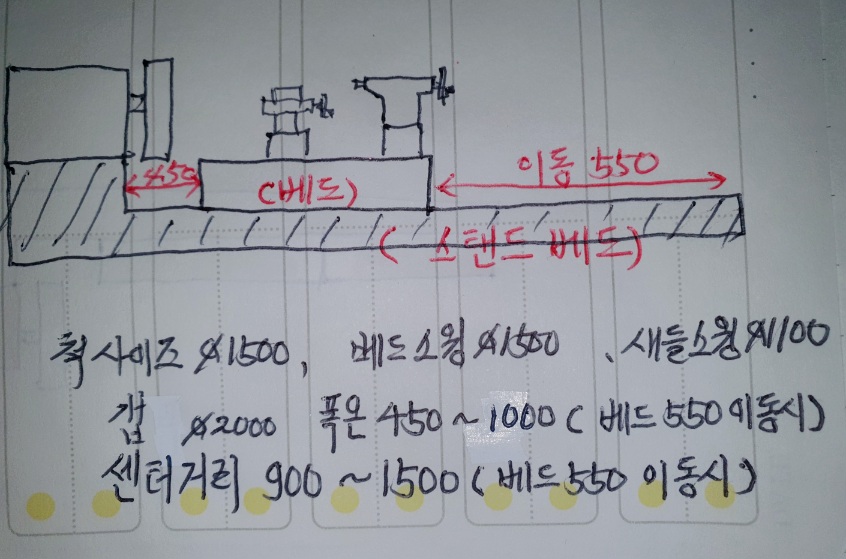 이동 550
450
(베드)
( 스탠드 베드)
척 사이즈 ⌀1500, 베드스윙 ⌀1500, 새들스윙 ⌀1100
갭 ⌀2000 폭은 450~1000( 베드 550 이동시)
센터거리 900~1500(베드 550 이동시)